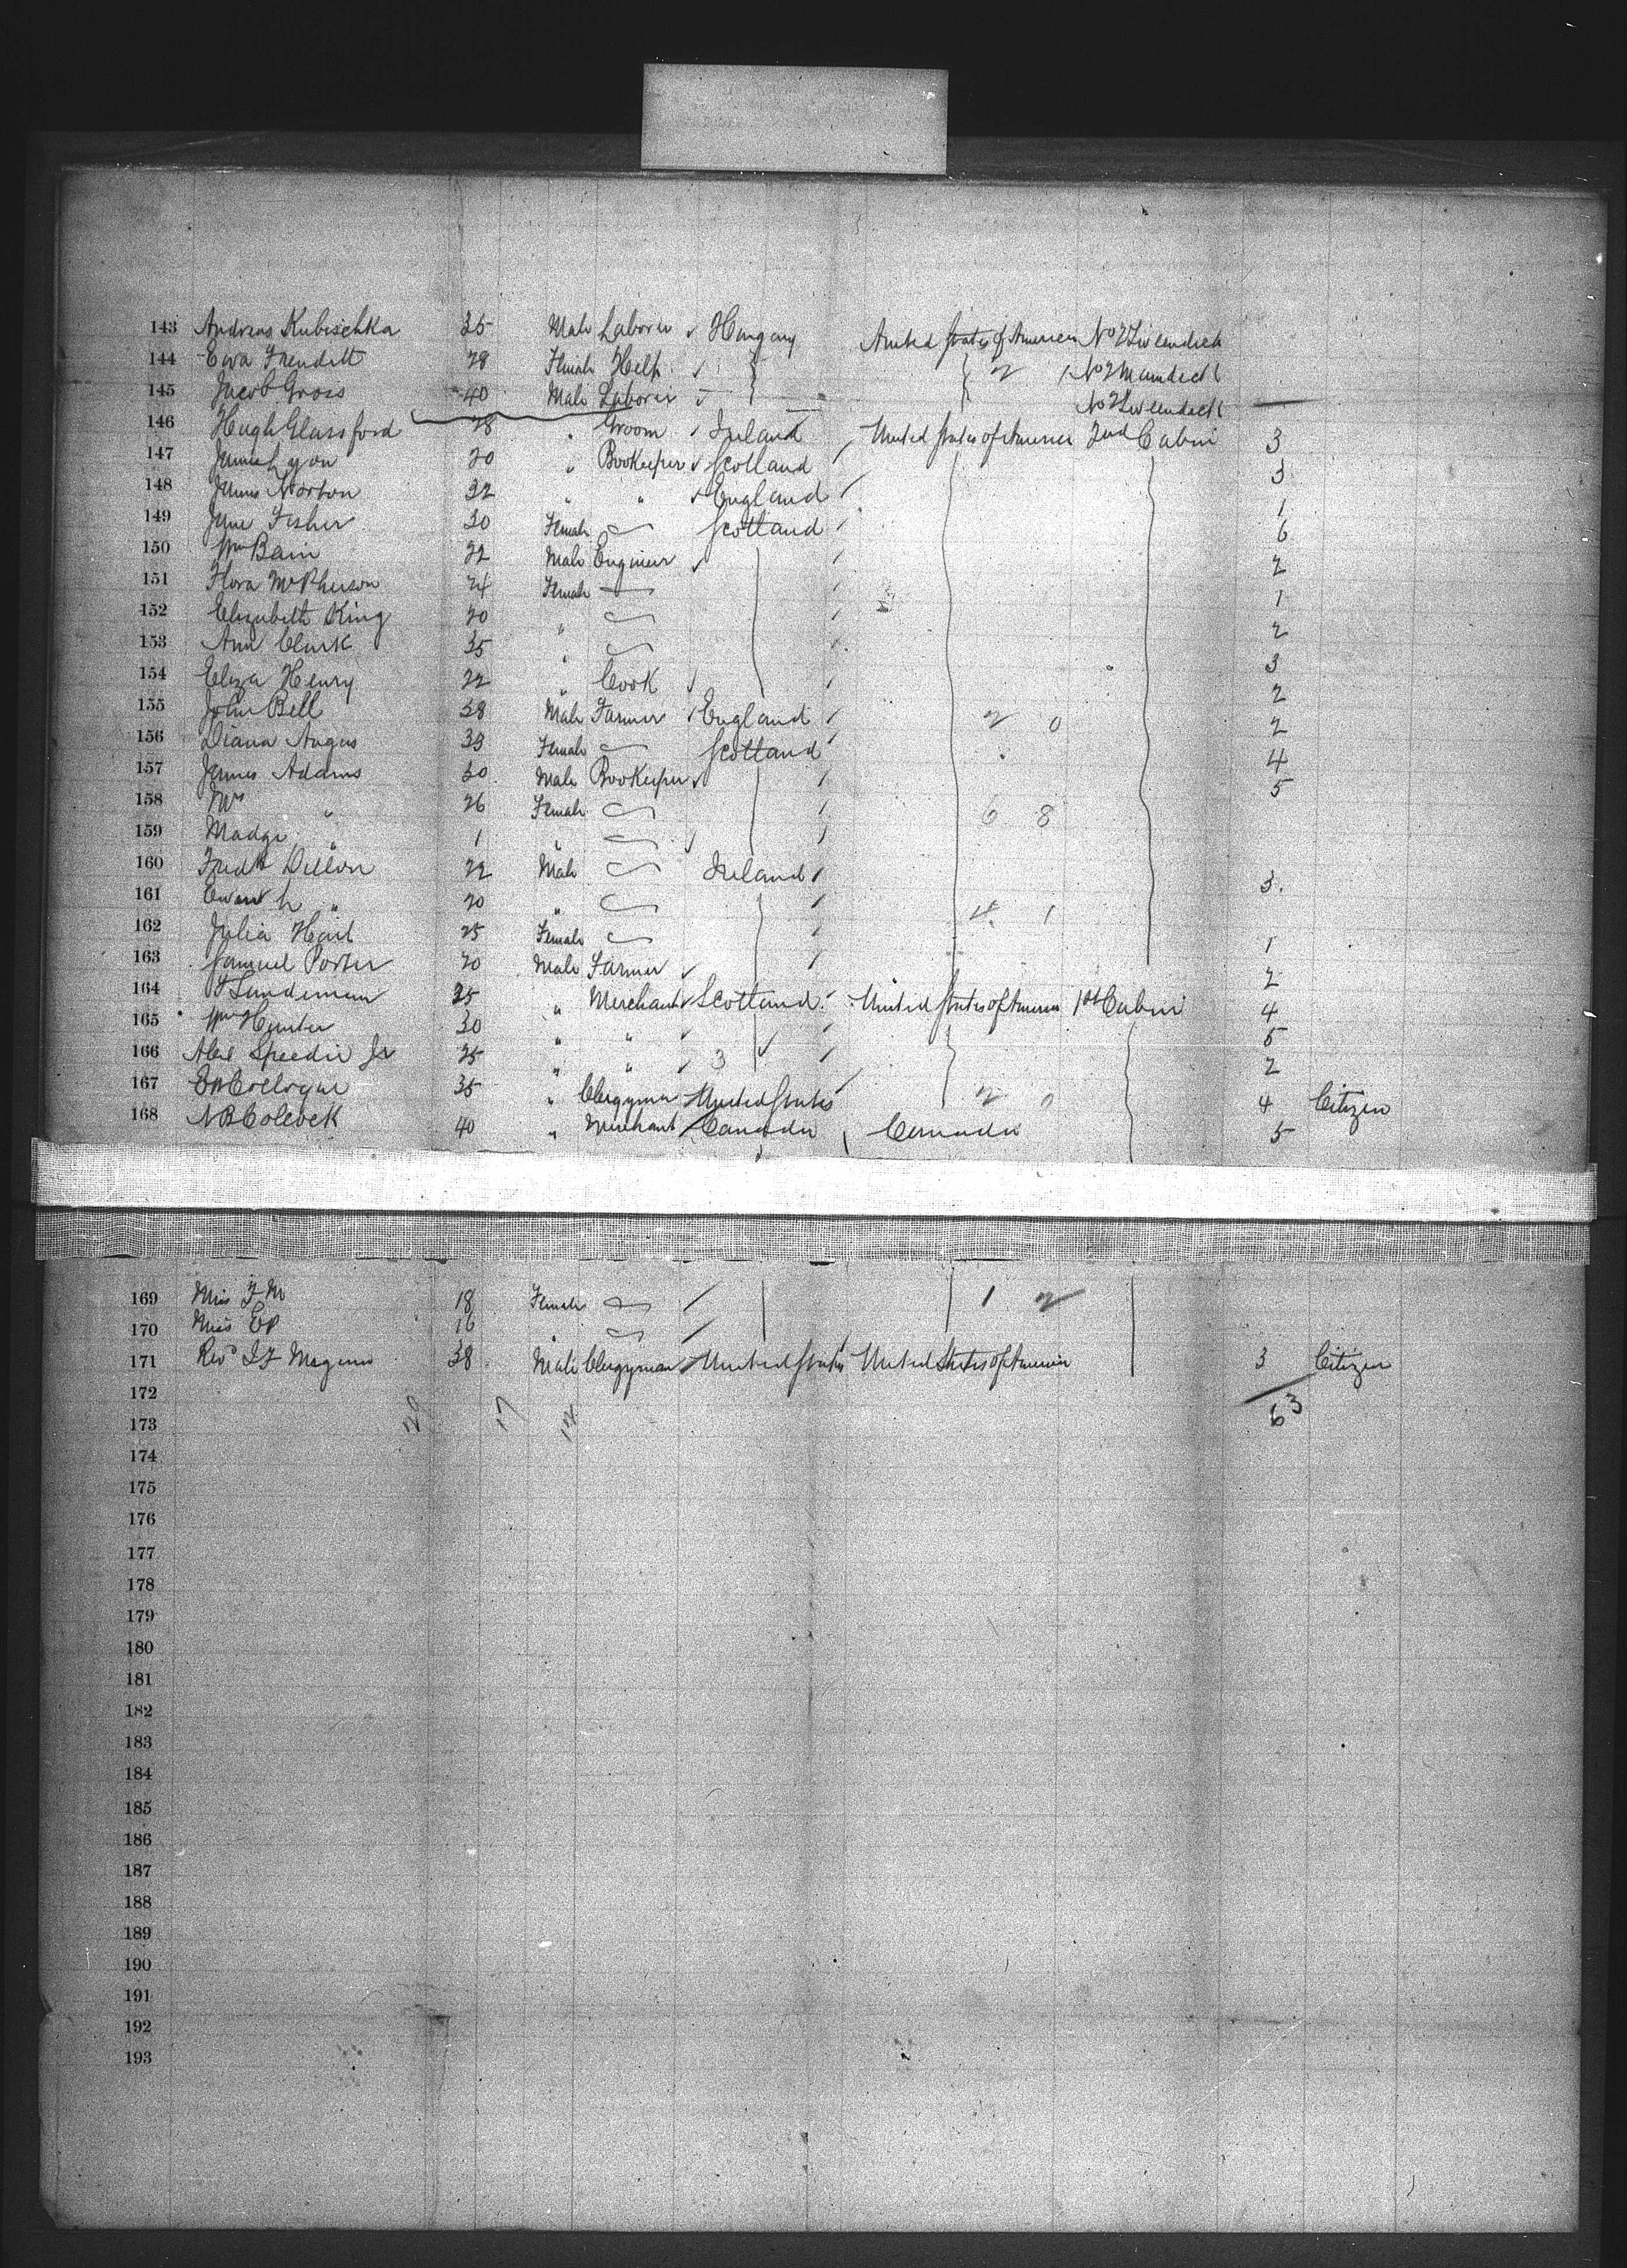 143 Andreas Kubischka 35 Male Laborer Hungary United States of America No 2 Tweendeck
144 Ewa Trendelt 28 Female Help 2 No 2 Maindeck
145 Jacob Gross 40 Male Laborer No 2 Tweendeck
146 Hugh Glassford 28 " Groom Ireland United States of America 2nd Cabin 3
147 James Lyon 20 " Bookeeper Scotland 3
148 James Norton 32 " " England 1
149 Jane Fisher 30 Female Scotland 6
150 Wm Bain 22 Male Engineer 2
151 Flora McPherson 24 Female 1
152 Elizabeth King 20 " 2
153 Ann Clark 35 " 3
154 Eliza Henry 22 " Cook 2
155 John Bell 38 Male Farmer England 2 0 2
156 Diana Angus 33 Female Scotland 4
157 James Adams 30 Male Bookeeper 5
158 Mrs " 26 Female 6 8
159 Madge " 1 "
160 Fredk Dillon 22 Male Ireland 3
161 " 20 " 4 1
162 Julia Hart 25 Female 1
163 Samuel Porter 20 Male Farmer 2
164 Sandeman 25 " Merchant Scotland United States of America 1st Cabin 4
165 Wm Hunter 30 " " 5
166 Alex Speedie Jr 25 " " 3 2
167 35 " Clergyman United States 2 0 4 Citizen
168 40 " Merchant Canada Canada 5
169 Miss 18 Female 1 2
170 Miss 16
171 Revd 38 Male Clergyman United States United States of America 3 Citizen
172 63
173 29 17 12
174
175
176
177
178
179
180
181
182
183
184
185
186
187
188
189
190
191
192
193